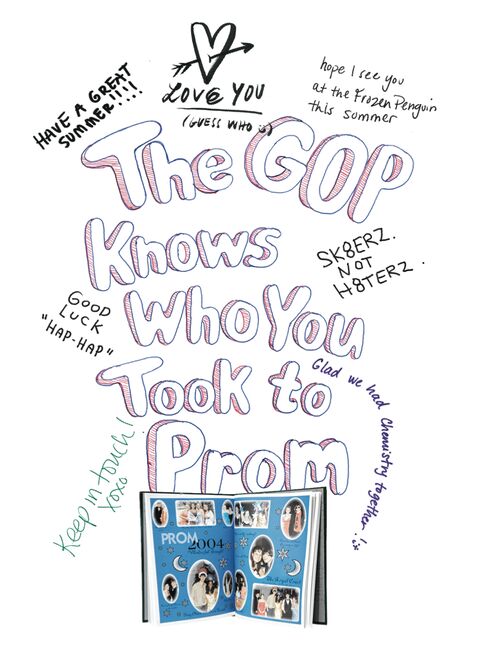 LOVE YOU
(GUESS WHO is)
HAVE A GREAT
SUMMER!!!!
hope I see you
at the Frozen Penguin
this summer
The GOP
Knows
Who You
Took to
Prom
SK8ERZ.
NOT
H8TERZ.
GOOD
LUCK
"HAP-HAP"
Glad we had Chemistry together!
Keep in touch!
XOXO
PROM
2004